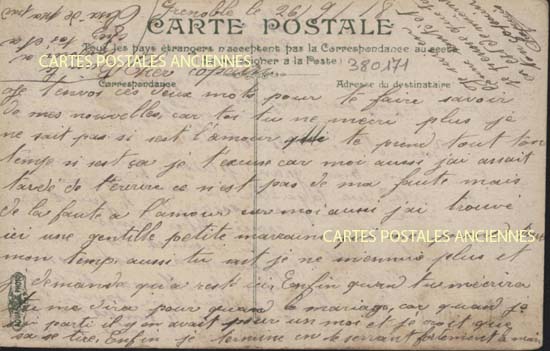 Grenoble le 26/9/18
CARTE POSTALE
Tous les pays étrangers n'acceptent pas la Correspondance au recto
(se renseigner à la Poste)
CARTES POSTALES ANCIENNES
380171
Cher copain
Correspondance
Adresse du destinataire
Je t'envois ces deux mots pour te faire savoir
de mes nouvelles, car toi tu ne mécri plus je
ne sait pas si sest l'amour qui te prend tout ton
temp si sest ça je t'excuse car moi aussi j'ai assait
tardé de t'écrire ce n'est pas de ma faute mais
de la faute a l'amour car moi aussi j'ai trouvé
ici une gentille petite
CARTES POSTALES ANCIENNES
mon temp aussi tu sait je ne mennuis plus et
je demande qua resté ici. Enfin quand tu mécrira
tu me dira pour quand le mariage, car quand je
sui parti il y en avait pour un moi et je croit que
sa se tire. Enfin je termine en te serrant fortement la main